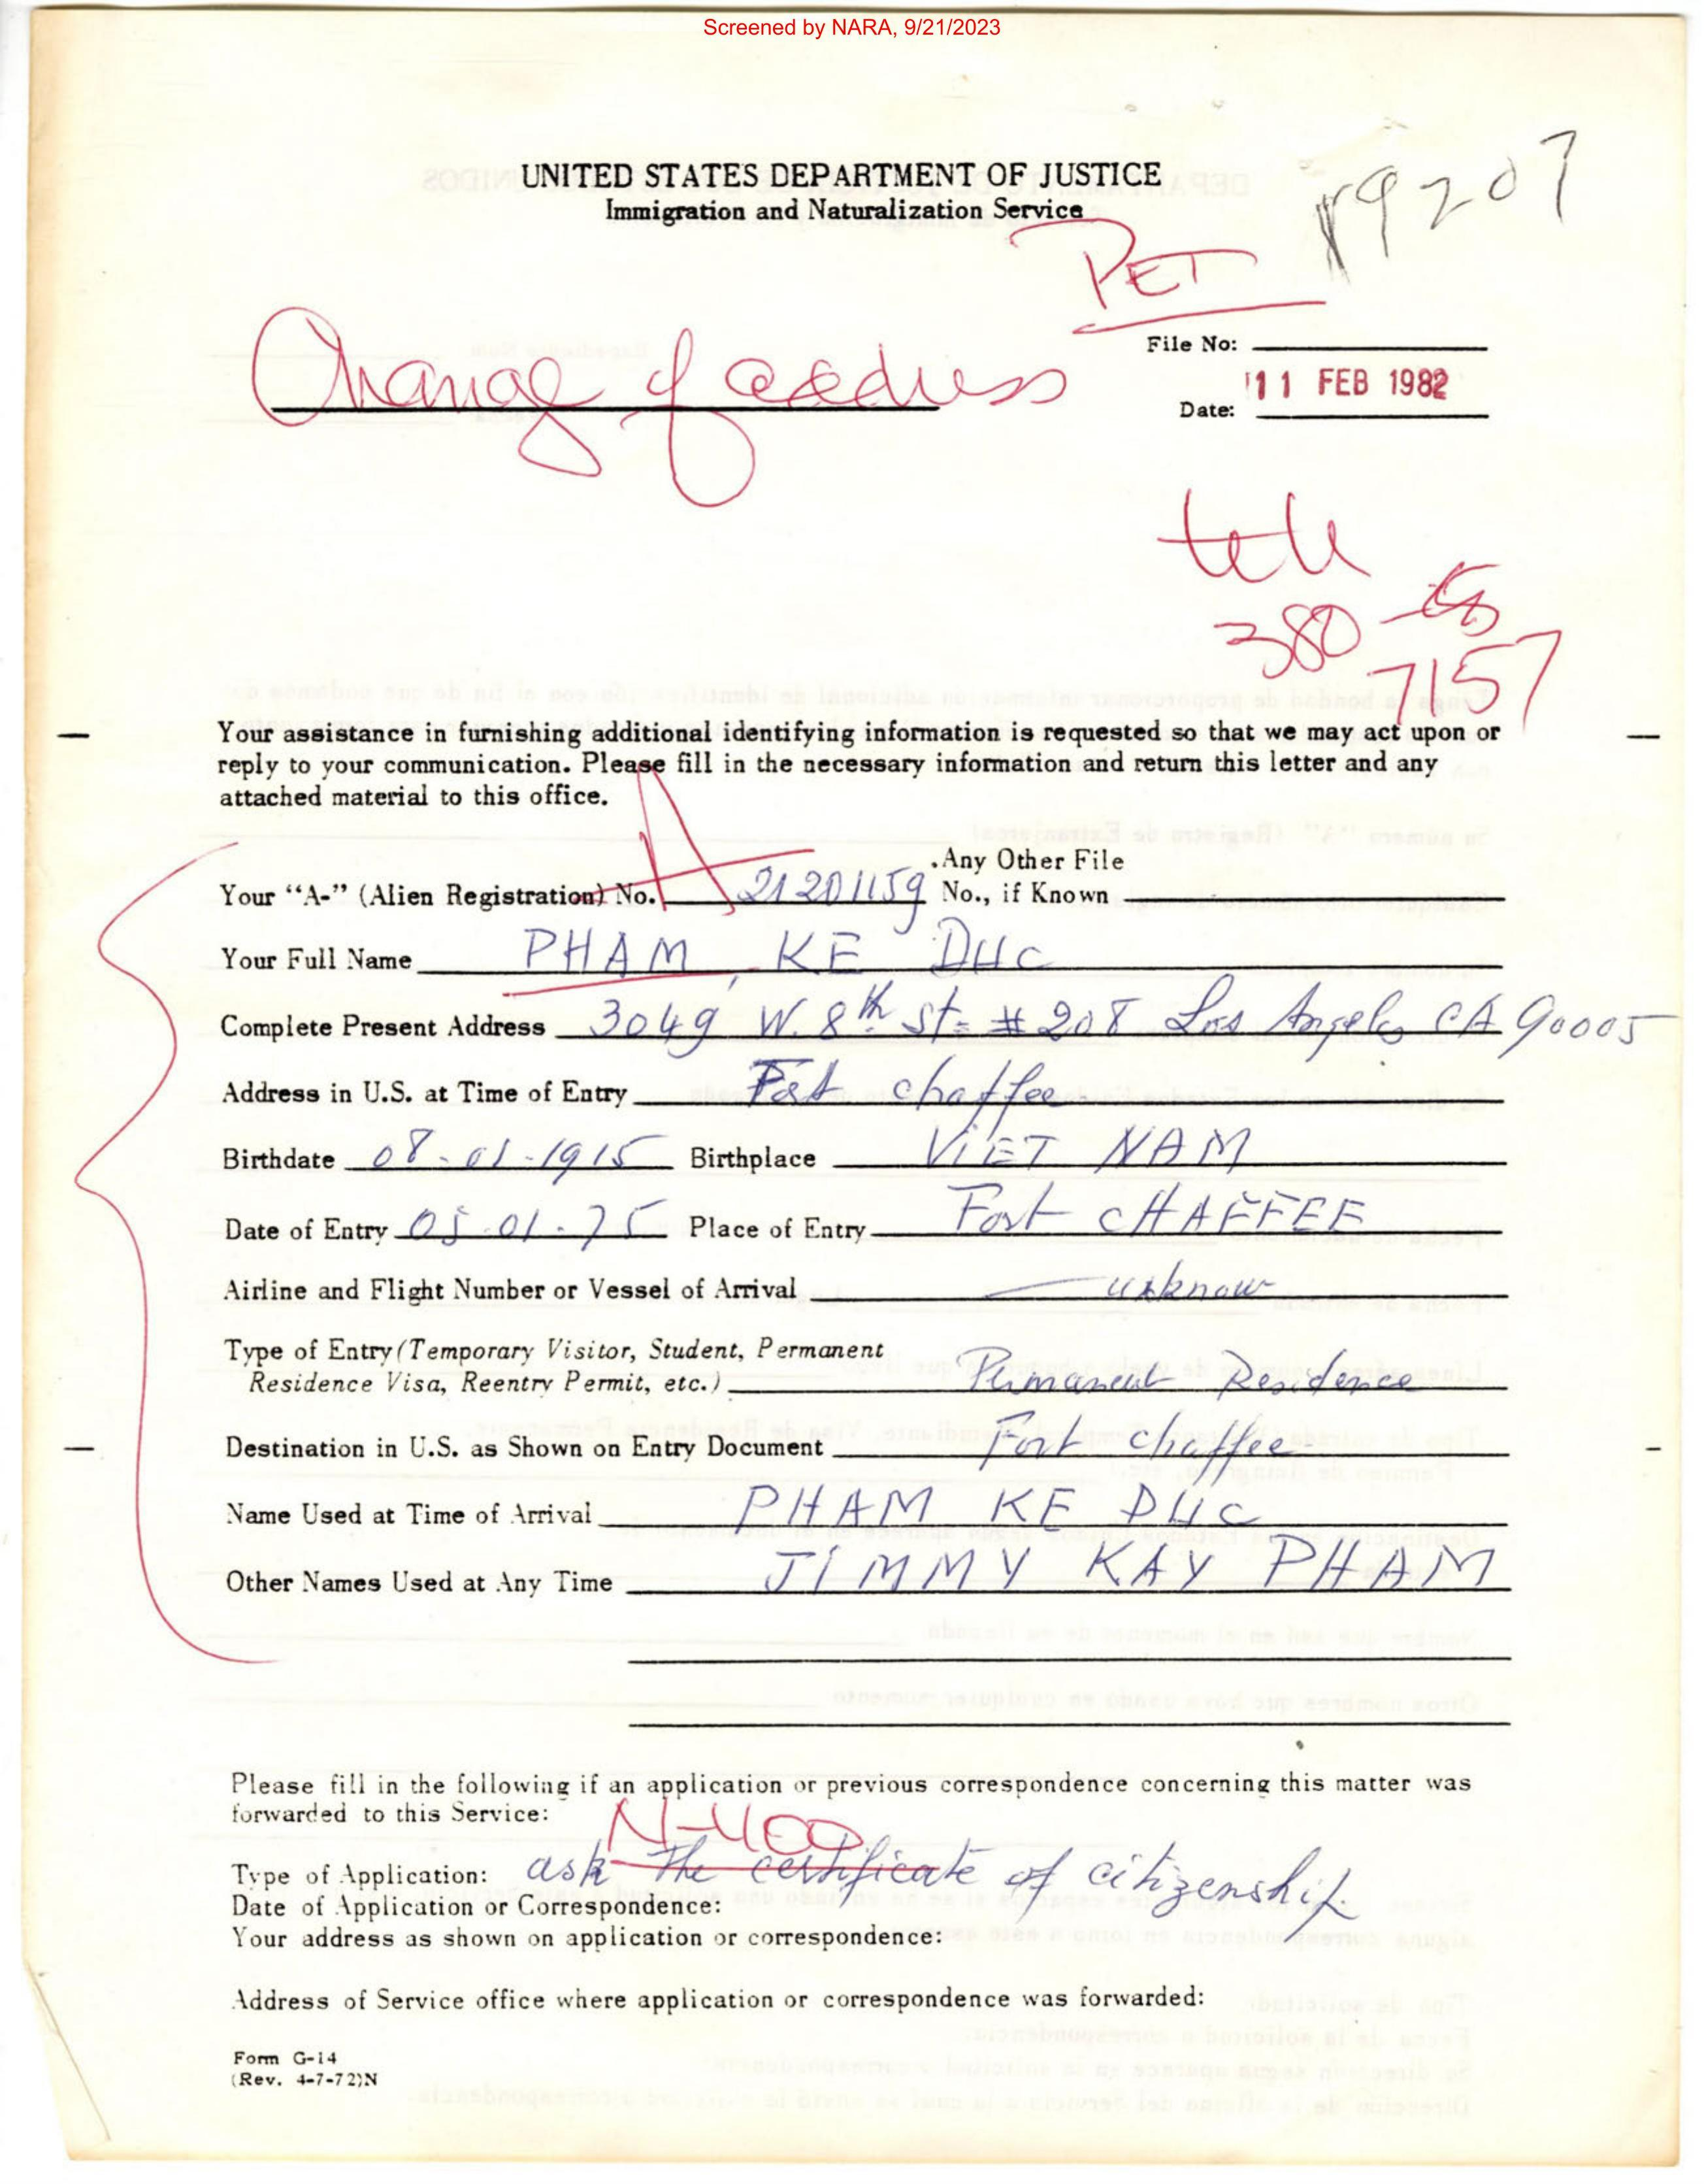 Screened by NARA, 9/21/2023
UNITED STATES DEPARTMENT OF JUSTICE
Immigration and Naturalization Service
9207
PET
File No:
Change of address
11 FEB 1982
Date:
tele
380
7157
Your assistance in furnishing additional identifying information is requested so that we may act upon or
reply to your communication. Please fill in the necessary information and return this letter and any
attached material to this office.
Your "A-" (Alien Registration) No. A 21201159 Any Other File
No., if Known
Your Full Name PHAM, KE DUC
Complete Present Address 3049 W. 8th St. #208 Los Angeles CA 90005
Address in U.S. at Time of Entry Fort chaffee
Birthdate 08-01-1915 Birthplace VIET NAM
Date of Entry 05-01-75 Place of Entry Fort CHAFFEE
Airline and Flight Number or Vessel of Arrival unknow
Type of Entry (Temporary Visitor, Student, Permanent
Residence Visa, Reentry Permit, etc.) Permanent Residence
Destination in U.S. as Shown on Entry Document Fort chaffee
Name Used at Time of Arrival PHAM KE DUC
Other Names Used at Any Time JIMMY KAY PHAM
Please fill in the following if an application or previous correspondence concerning this matter was
forwarded to this Service:
N-400
Type of Application: ask the certificate of citizenship.
Date of Application or Correspondence:
Your address as shown on application or correspondence:
Address of Service office where application or correspondence was forwarded:
Form G-14
(Rev. 4-7-72)N